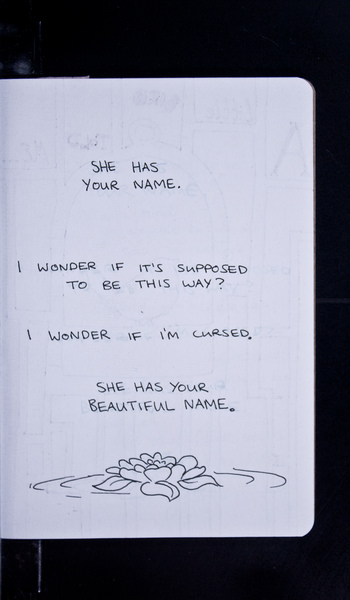 SHE HAS
YOUR NAME.
I WONDER IF IT'S SUPPOSED
TO BE THIS WAY?
I WONDER IF I'M CURSED.
SHE HAS YOUR
BEAUTIFUL NAME.